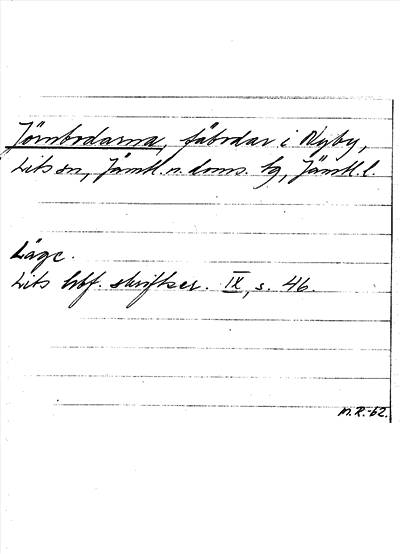 Jörnbodarna, fäbodar i Nyby,
Lits sn, Jämtl. n. doms. tg, Jämtl. l.
Läge.
Lits hbf. skriftser. IX, s. 46.
M.R.-62.